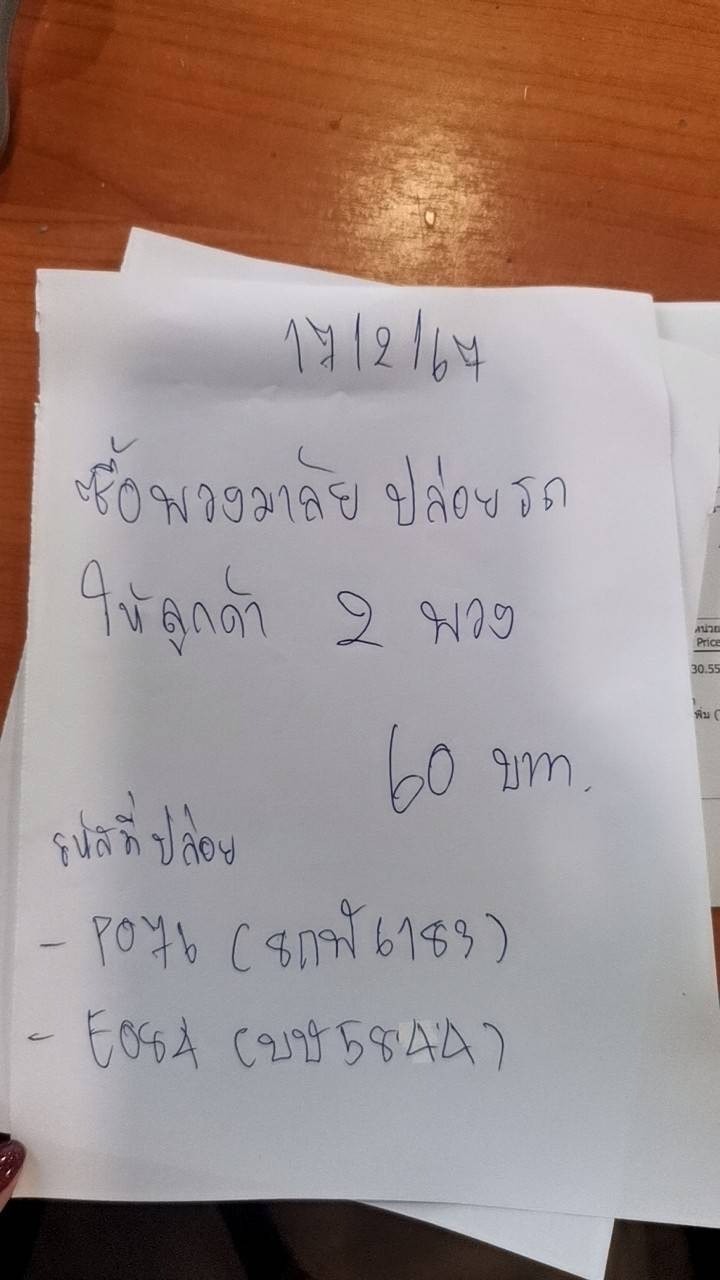 17/2/67
ซื้อพวงมาลัย ปล่อยรถ
ให้ลูกค้า 2 พวง
60 บาท.
รหัสที่ปล่อย
- P076 (8กฬ 6183)
- E084 (บบ 5844)
หน่วย
Price
30.55